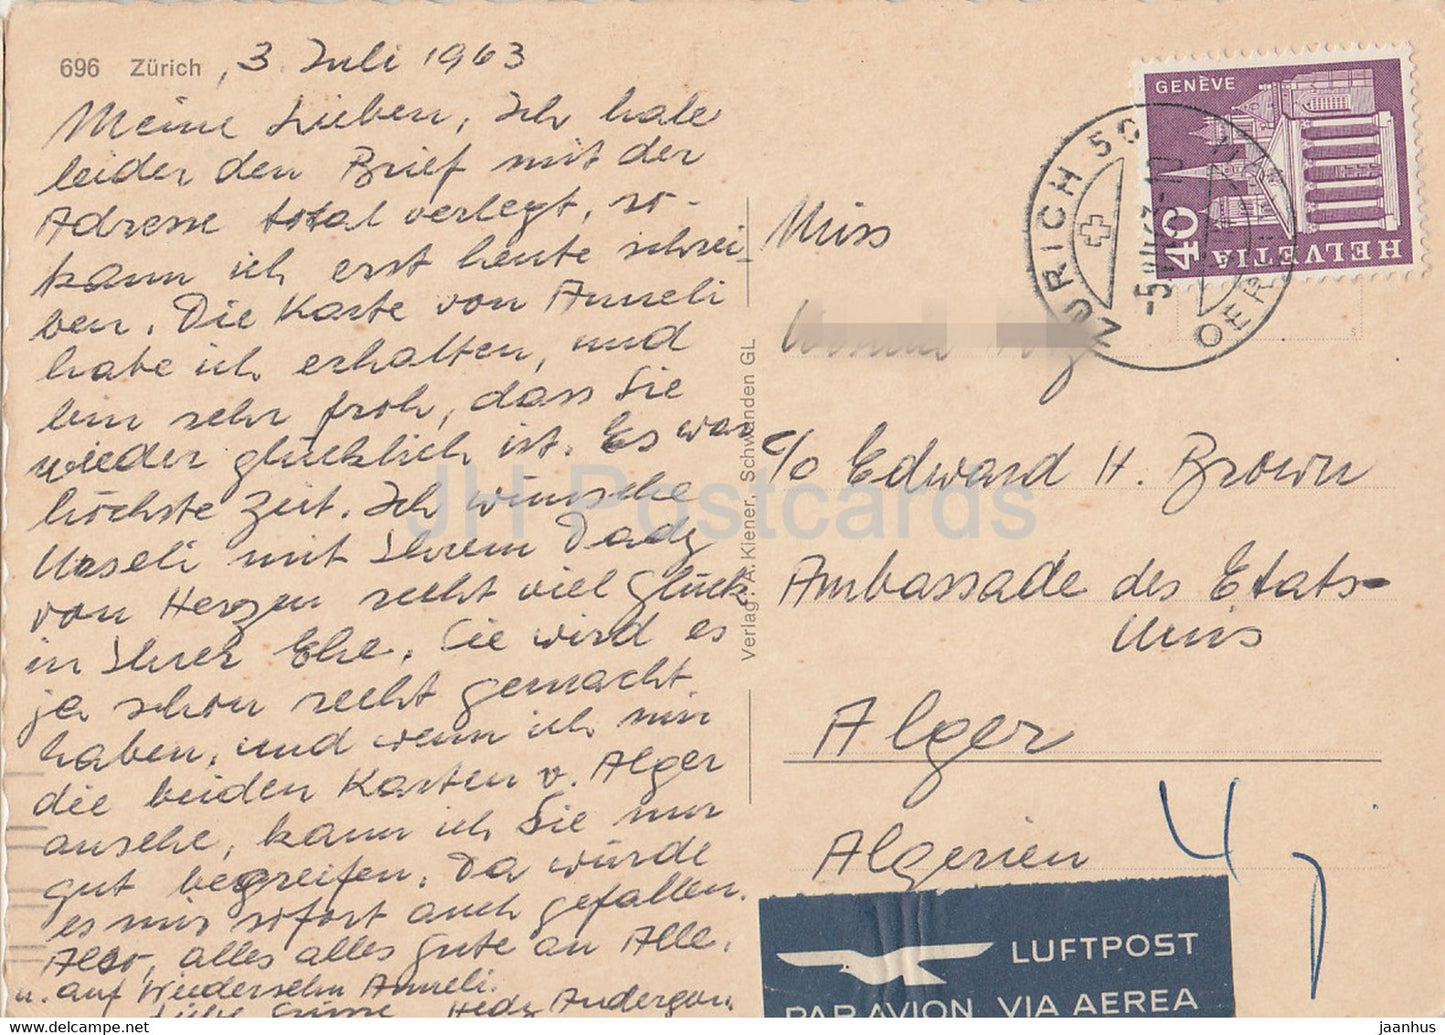 696 Zürich, 3. Juli 1963
Meine Lieben, Ich habe
leider den Brief mit der
Adresse total verlegt, so-
kann ich erst heute schrei-
ben. Die Karte von Anneli
habe ich erhalten, und
bin sehr froh, dass Sie
wieder glücklich ist. Es war
höchste Zeit. Ich wünsche
Urseli mit Ihrem Dady
von Herzen recht viel Glück
in Ihrer Ehe. Sie wird es
ja schon recht gemacht
haben, und wenn ich mir
die beiden Karten v. Alger
ansehe, kann ich Sie nur
gut begreifen. Da würde
es mir sofort auch gefallen.
Also, alles alles Gute an Alle,
u. auf Wiedersehn Anneli.
Liebe Grüsse Hedy
Verlag: A. Kiener, Schwanden GL
Miss
c/o Edward H. Brown
Ambassade des Etats-
Unis
Alger
Algerien
GENÈVE
40
HELVETIA
ZÜRICH 50
OERLIKON
LUFTPOST
PAR AVION VIA AEREA
JH Postcards
www.delcampe.net
jaanhus